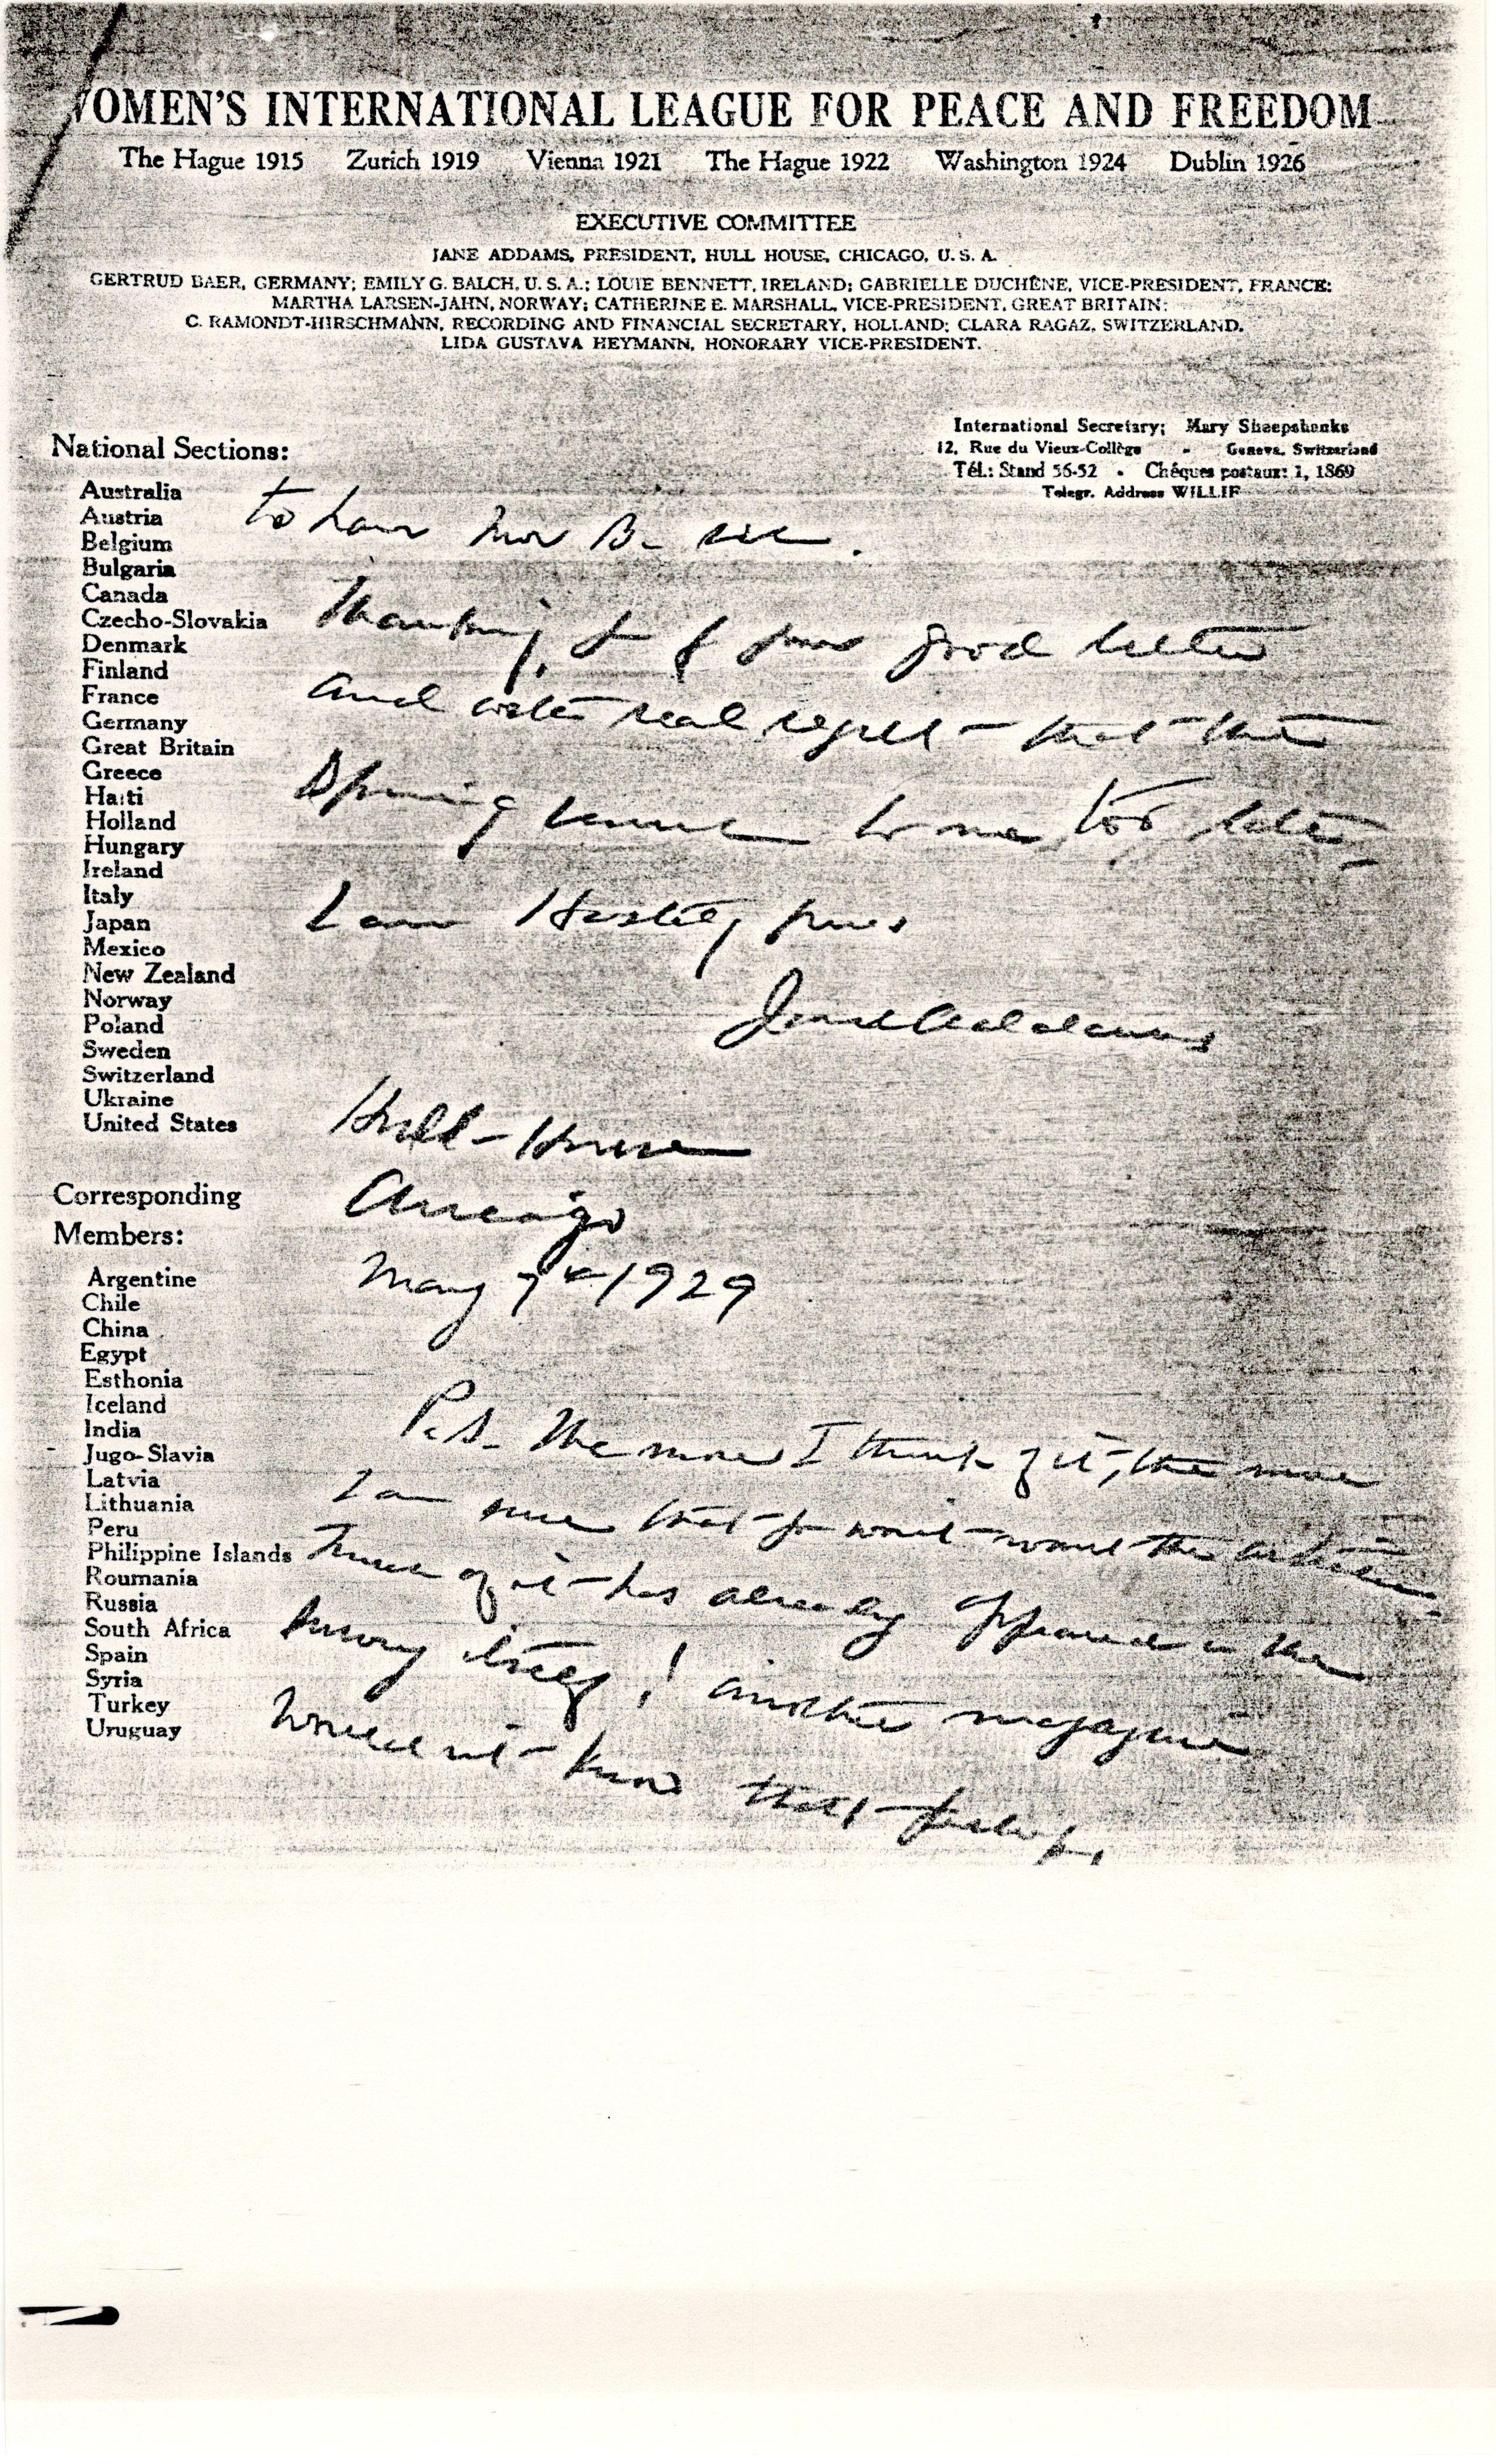 WOMEN'S INTERNATIONAL LEAGUE FOR PEACE AND FREEDOM
The Hague 1915 Zurich 1919 Vienna 1921 The Hague 1922 Washington 1924 Dublin 1926
EXECUTIVE COMMITTEE
JANE ADDAMS, PRESIDENT, HULL HOUSE, CHICAGO, U.S.A.
GERTRUD BAER, GERMANY; EMILY G. BALCH, U.S.A.; LOUIE BENNETT, IRELAND; GABRIELLE DUCHÊNE, VICE-PRESIDENT, FRANCE;
MARTHA LARSEN-JAHN, NORWAY; CATHERINE E. MARSHALL, VICE-PRESIDENT, GREAT BRITAIN;
C. RAMONDT-HIRSCHMANN, RECORDING AND FINANCIAL SECRETARY, HOLLAND; CLARA RAGAZ, SWITZERLAND.
LIDA GUSTAVA HEYMANN, HONORARY VICE-PRESIDENT.
International Secretary: Mary Sheepshanks
12, Rue du Vieux-Collège - Geneva, Switzerland
Tél.: Stand 56-52 - Chéques postaux: 1, 1869
Telegr. Address WILLIF
National Sections:
Australia
Austria
Belgium
Bulgaria
Canada
Czecho-Slovakia
Denmark
Finland
France
Germany
Great Britain
Greece
Haiti
Holland
Hungary
Ireland
Italy
Japan
Mexico
New Zealand
Norway
Poland
Sweden
Switzerland
Ukraine
United States
Corresponding
Members:
Argentine
Chile
China
Egypt
Esthonia
Iceland
India
Jugo-Slavia
Latvia
Lithuania
Peru
Philippine Islands
Roumania
Russia
South Africa
Spain
Syria
Turkey
Uruguay
to have B-
Thanking you for your good letter
and with real regret that the
Spring to me too late,
I am Hastily yours
Jane Addams
Hull-House
Chicago
May 7th 1929
P.S. The more I think of it, the more
I am sure that you won't want the article
of it has already appeared in the
Survey itself! another magazine
would not know that perhaps.